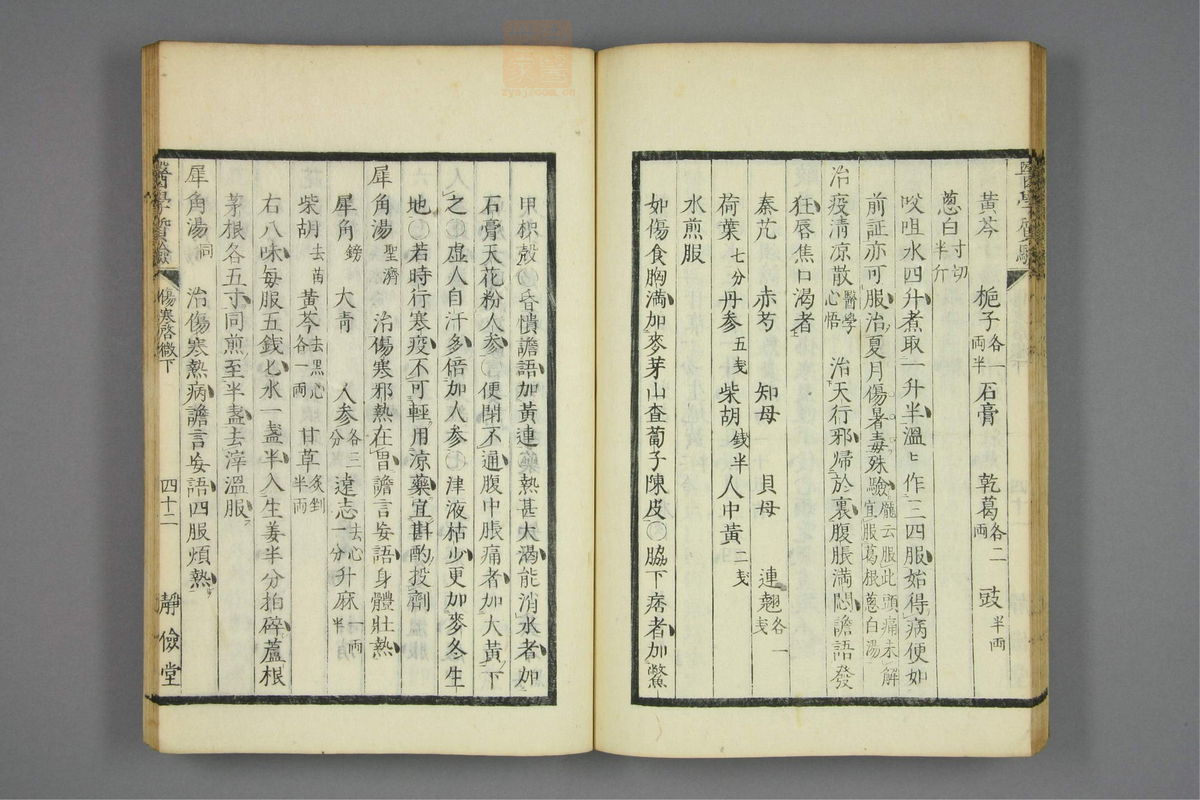 黃芩 梔子各一兩半 石膏 乾葛各二兩 豉半両
蔥白寸切半斤
㕮咀水四升煮取一升半溫ヒ作三四服始得病便如
前証亦可服治夏月傷暑毒殊驗龐云服此頭痛未解宜服葛根蔥白湯
治疫清凉散醫學心悟 治天行邪歸於裏腹脹満悶譫語發
狂唇焦口渴者
秦艽 赤芍 知母 貝母 連翹各一戋
荷葉七分 丹参五戋 柴胡錢半 人中黃二戋
水煎服
如傷食胸満加麥芽山査蔔子陳皮〇脇下痞者加鱉
甲枳殼〇昏憒譫語加黃連〇藥熱甚大渴能消水者加
石膏天花粉人参〇便閉不通腹中脹痛者加大黃下
之〇虛人自汗多倍加人参〇津液枯少更加麥冬生
地〇若時行寒疫不可輕用涼藥宜斟酌投劑
犀角湯聖濟 治傷寒邪熱在胃譫言妄語身體壯熱
犀角鎊 大青 人参各三分 遠志去心一分 升麻一両半
柴胡去苗 黃芩去黑心各一両 甘草炙剉半両
右八味每服五錢匕水一盞半入生姜半分拍碎蘆根
茅根各五寸同煎至半盞去滓溫服
犀角湯同 治傷寒熱病譫言妄語四服煩熱
醫學實驗 傷寒啓微下 四十二 靜儉堂
醫學實驗